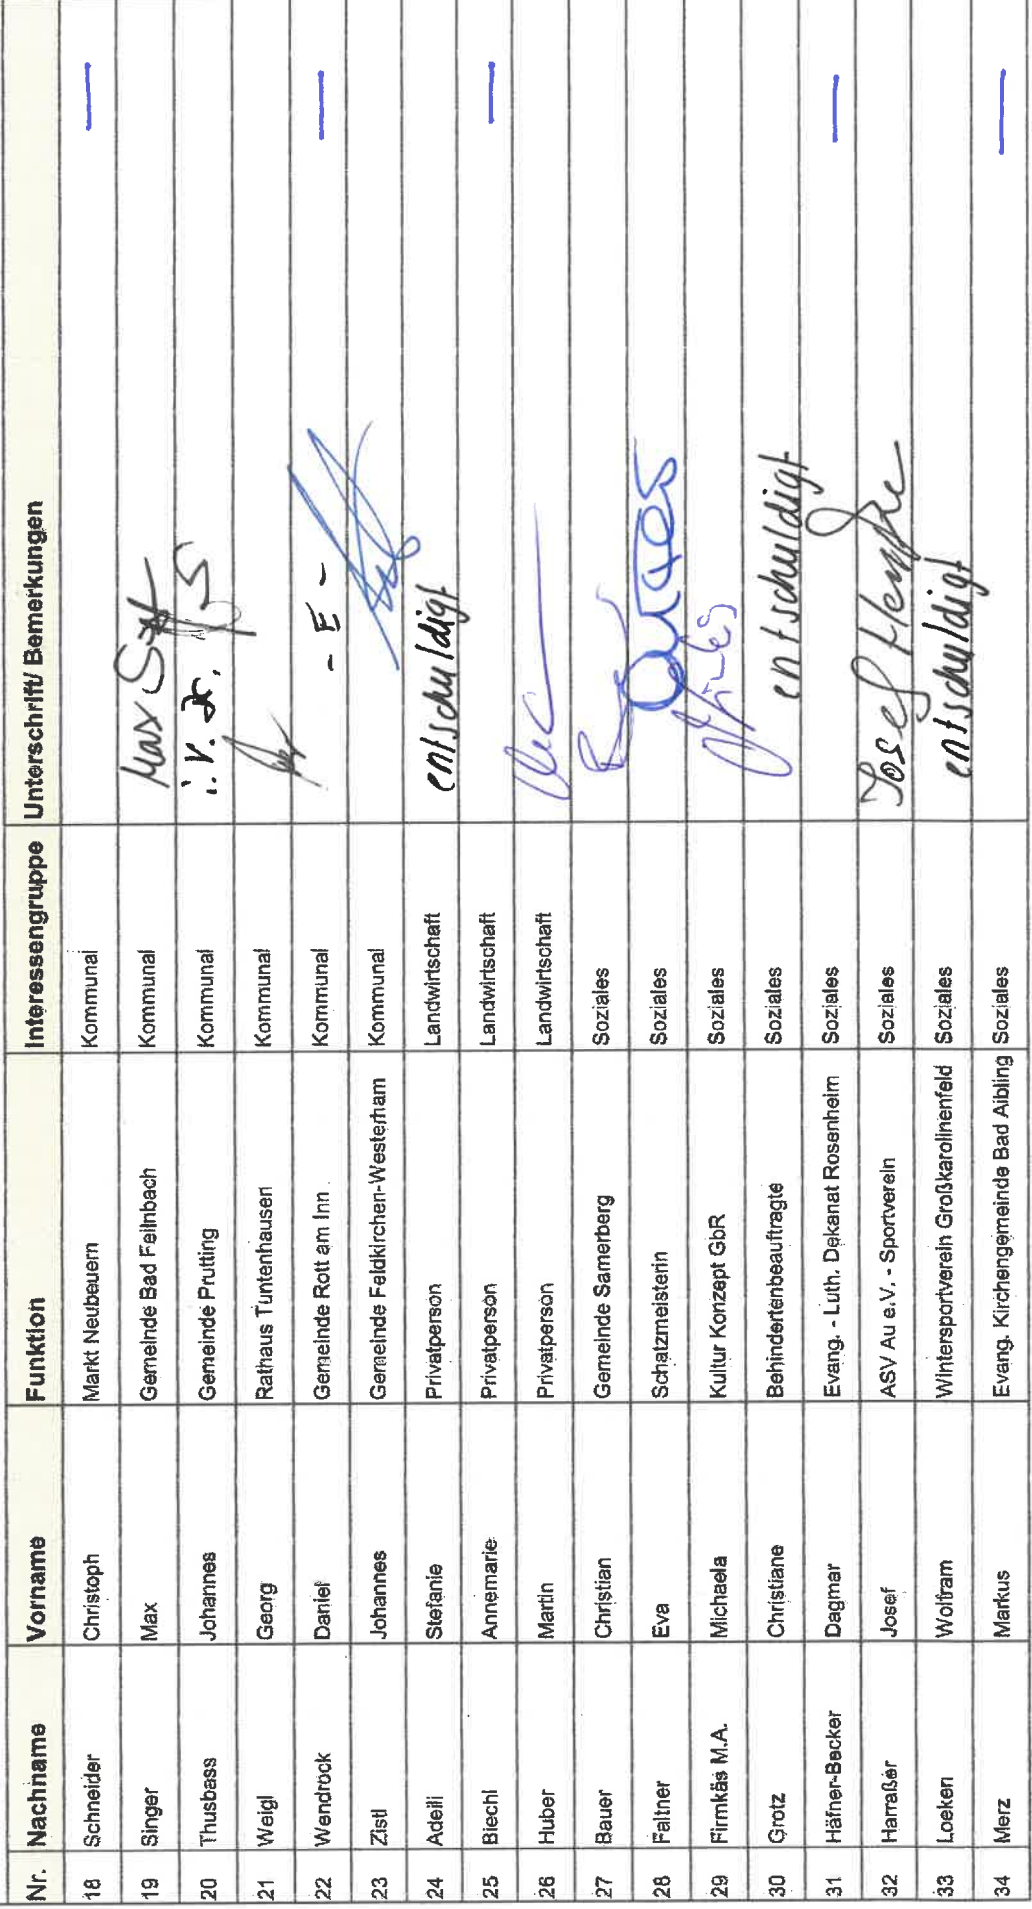 Nr. Nachname Vorname Funktion Interessengruppe Unterschrift/ Bemerkungen
18 Schneider Christoph Markt Neubeuern Kommunal —
19 Singer Max Gemeinde Bad Feilnbach Kommunal Max
20 Thusbass Johannes Gemeinde Prutting Kommunal i.V.
21 Weigl Georg Rathaus Tuntenhausen Kommunal
22 Wendrock Daniel Gemeinde Rott am Inn Kommunal - E - —
23 Zistl Johannes Gemeinde Feldkirchen-Westerham Kommunal
24 Adeili Stefanie Privatperson Landwirtschaft entschuldigt
25 Biechl Annemarie Privatperson Landwirtschaft —
26 Huber Martin Privatperson Landwirtschaft
27 Bauer Christian Gemeinde Samerberg Soziales
28 Faltner Eva Schatzmeisterin Soziales
29 Firmkäs M.A. Michaela Kultur Konzept GbR Soziales
30 Grotz Christiane Behindertenbeauftragte Soziales entschuldigt
31 Häfner-Becker Dagmar Evang. - Luth. Dekanat Rosenheim Soziales —
32 Harraßer Josef ASV Au e.V. - Sportverein Soziales Josef
33 Loeken Wolfram Wintersportverein Großkarolinenfeld Soziales entschuldigt
34 Merz Markus Evang. Kirchengemeinde Bad Aibling Soziales —